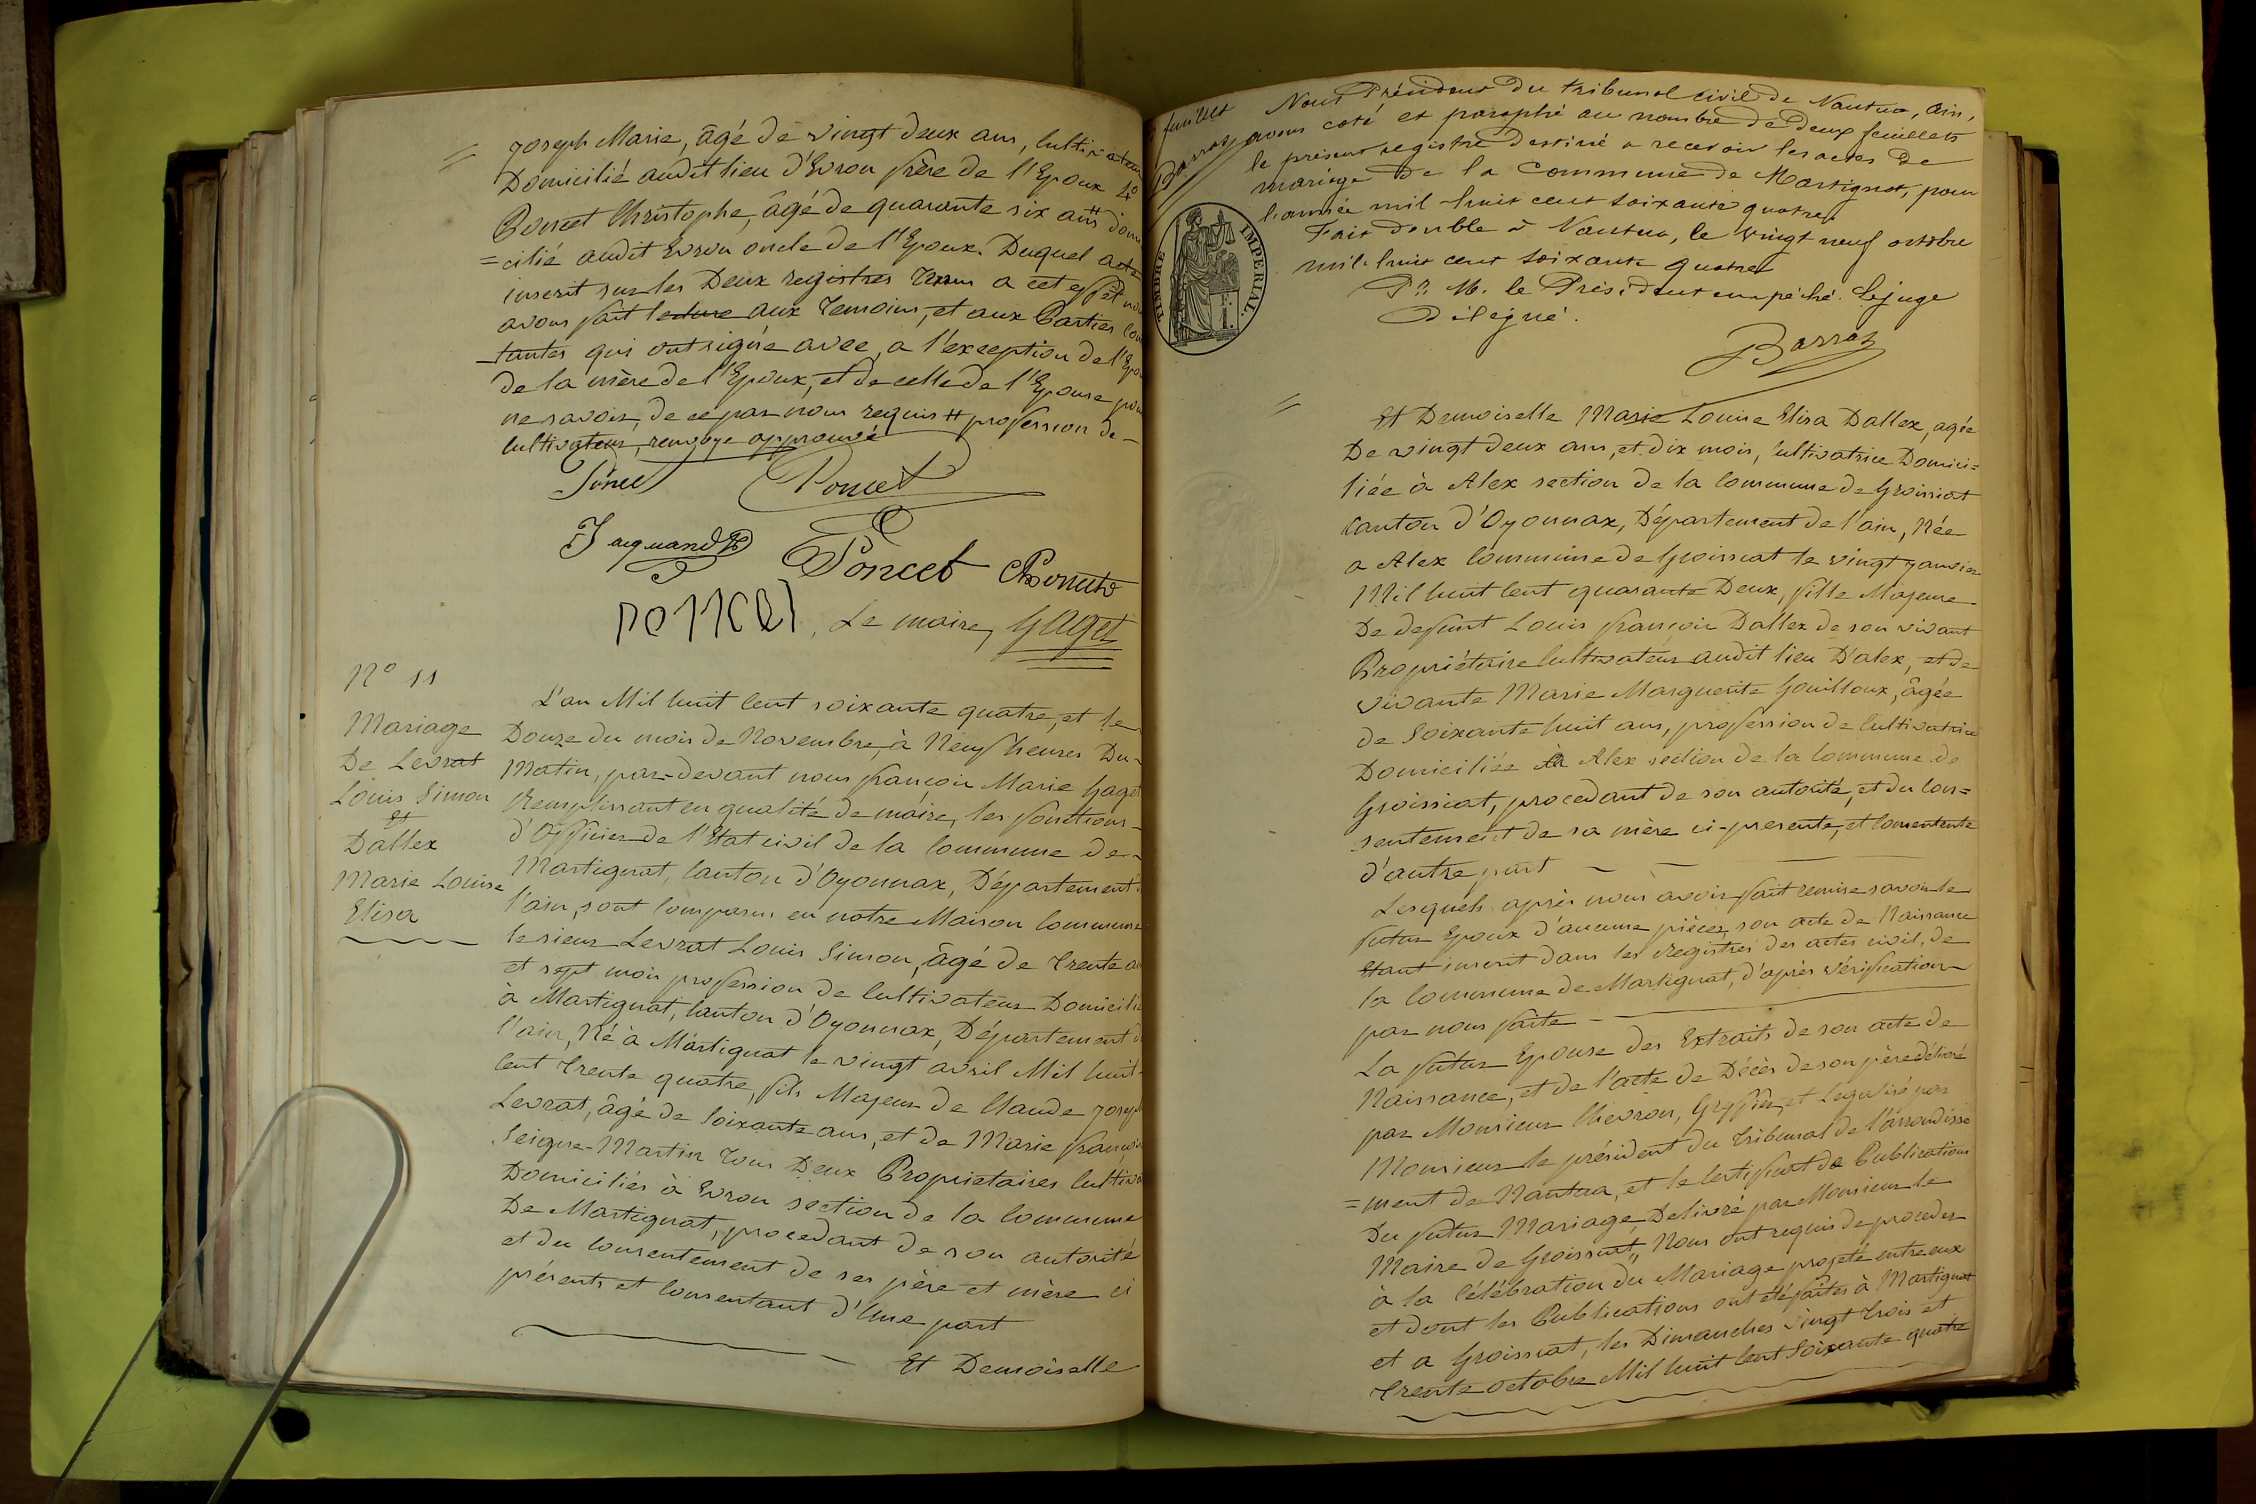 Joseph Marie, âgé de vingt deux ans, Cultivateur
Domicilié audit lieu d'Evron frère de l'Epoux 4°
Poncet Christophe, âgé de quarante six ans # domi
=cilié audit Evron oncle de l'Epoux. Duquel acte
inscrit sur les Deux registres Tenus a cet effet nous
avons fait lecture aux Temoins, et aux Parties Con
tantes qui ont signée avec, a l'exception de l'Epou
de la mère de l'Epoux, et de celle de l'Epouse pour
ne savoir, de ce par nous requis # profession de
Cultivateur, renvoye approuvé
Poncet
Jacquand
Poncet
Poncet
Le maire, Gaget
N° 11
Mariage
De Levrat
Louis Simon
Et
Dallex
Marie Louise
Elisa
L'an Mil huit Cent soixante quatre, et le
Douze du mois de Novembre, à Neuf heures Du
Matin, par-devant nous françois Marie Gaget
Remplissant en qualité de maire, les fonctions
d'Officier de l'Etat civil de la Commune de
Martignat, Canton d'Oyonnax, Département
l'ain, sont Comparus en notre Maison Commune
le sieur Levrat Louis Simon, âgé de Trente a
et sept mois profession de Cultivateur Domicilié
à Martignat, Canton d'Oyonnax, Département d
l'ain, Né à Martignat le vingt avril Mil huit
Cent Trente quatre, fils Majeur de Claude Joseph
Levrat, âgé de Soixante ans, et de Marie françoi
Seigne-Martin Tous Deux Propriétaires Cultiva
Domiciliés à Evron section de la Commune
De Martignat, procedant de son autorité
et du Consentement de ses père et mère ci
présents et Consentant d'Une part
Et Demoiselle
feuillet
Barraz
Nous Président Du tribunal civil de Nantua, Ain,
avons coté et paraphé au nombre de deux feuillets
le présent registre destiné a recevoir les actes de
mariage de la Commune de Martignat, pour
l'année mil huit cent soixante quatre.
Fait double à Nantua, le vingt neuf octobre
mil huit cent soixante quatre
Pr. M. le Président empêché. Le juge
Délégué.
Barraz
TIMBRE IMPERIAL.
Et Demoiselle Marie Louise Elisa Dallex, agée
De vingt deux ans, et dix mois, Cultivatrice Domici=
liée à Alex section de la Commune de Groissiat
Canton d'Oyonnax, Département de l'ain, Née
a Alex Commune de Groissiat le vingt janvier
Mil huit Cent quarante Deux, fille Majeure
De defunt Louis françois Dallex de son vivant
Propriétaire Cultivateur audit lieu D'alex, et de
vivante Marie Marguerite Gouilloux, âgée
de Soixante huit ans, profession de Cultivatrice
Domiciliée à Alex section de la Commune de
Groissiat, procedant de son autorité, et du Con=
sentement de sa mère ci-presente, et Consentente
d'autre part
Lesquels après nous avoir fait remise savoir le
futur Epoux d'aucune pièces, son acte de Naissance
Etant inscrit dans les Registres des actes civil, de
la Commune de Martignat, d'après vérification
par nous faite
La futur Epouse des Extraits de son acte de
Naissance, et de l'acte de Décès de son père délivré
par Monsieur Chevron, Greffier, et Legalisé par
Monsieur le président du Tribunal de l'arrondisse
=ment de Nantua, et le Certificat de Publications
Du futur Mariage, Delivré par Monsieur le
Maire de Groissiat, Nous ont requis de proceder
à la Célébration du Mariage projeté entre eux
et dont les Publications ont été faites à Martignat
et a Groissiat, les Dimanches vingt Trois et
Trente octobre Mil huit Cent Soixante quatre